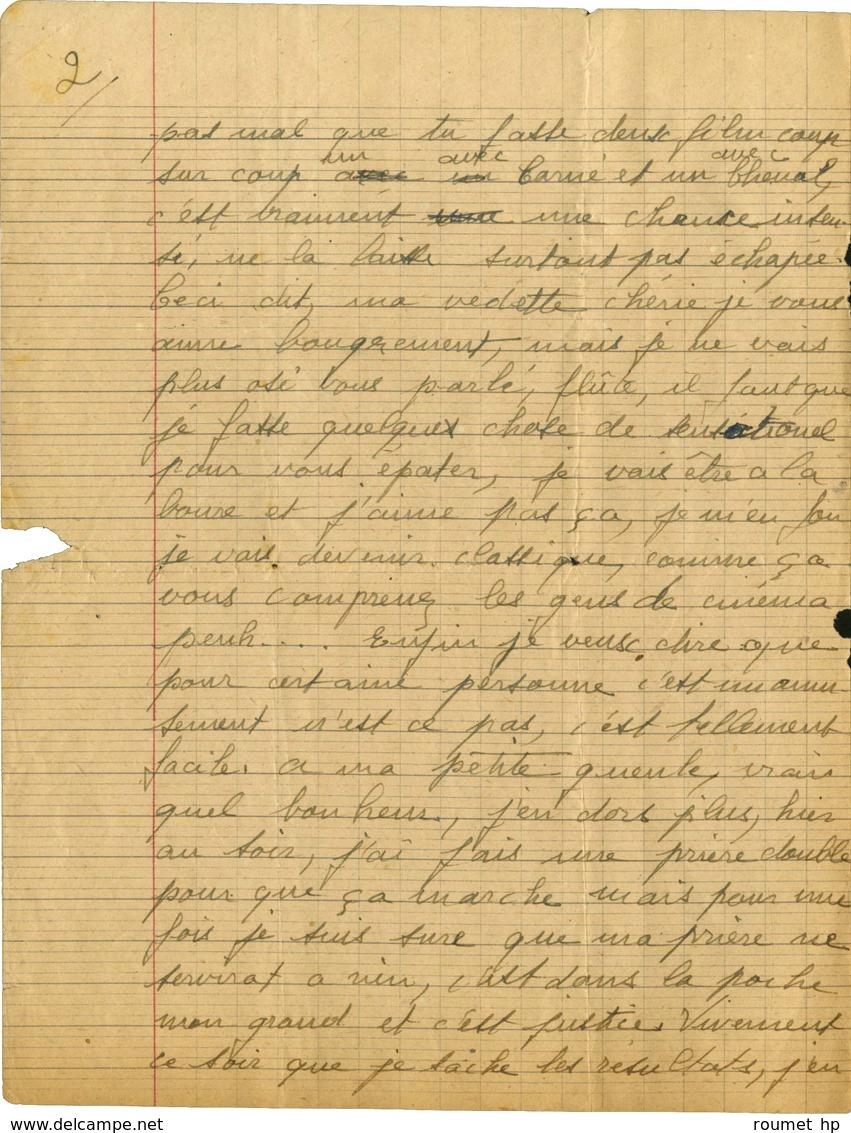 2/
pas mal que tu fasse deux film coup
sur coup un avec Carné et un avec Chenal,
c'est vraiment une chance inten-
sé, ne la laisse surtout pas échapée.
Ceci dit, ma vedette chérie je vous
aime bougrement, mais je ne vais
plus osé vous parlé, flûte, il faut que
je fasse quelques chose de sensationel
pour vous épater, je vais être a la
boure et j'aime pas ça, je m'en fou
je vais devenir classique, comme ça
vous comprenez les gens de cinéma
peuh.... Enfin je veux dire que
pour certaine personne c'est un amu-
sement n'est ce pas, c'est tellement
facile. a ma petite gueule, vrai
quel bonheur, j'en dors plus, hier
au soir, j'ai fais une prière double
pour que ça marche mais pour une
fois je suis sure que ma prière ne
servirat a rien, c'est dans la poche
mon grand et c'est justice. Vivement
ce soir que je sache les résultats, j'en
www.delcampe.net
roumet hp